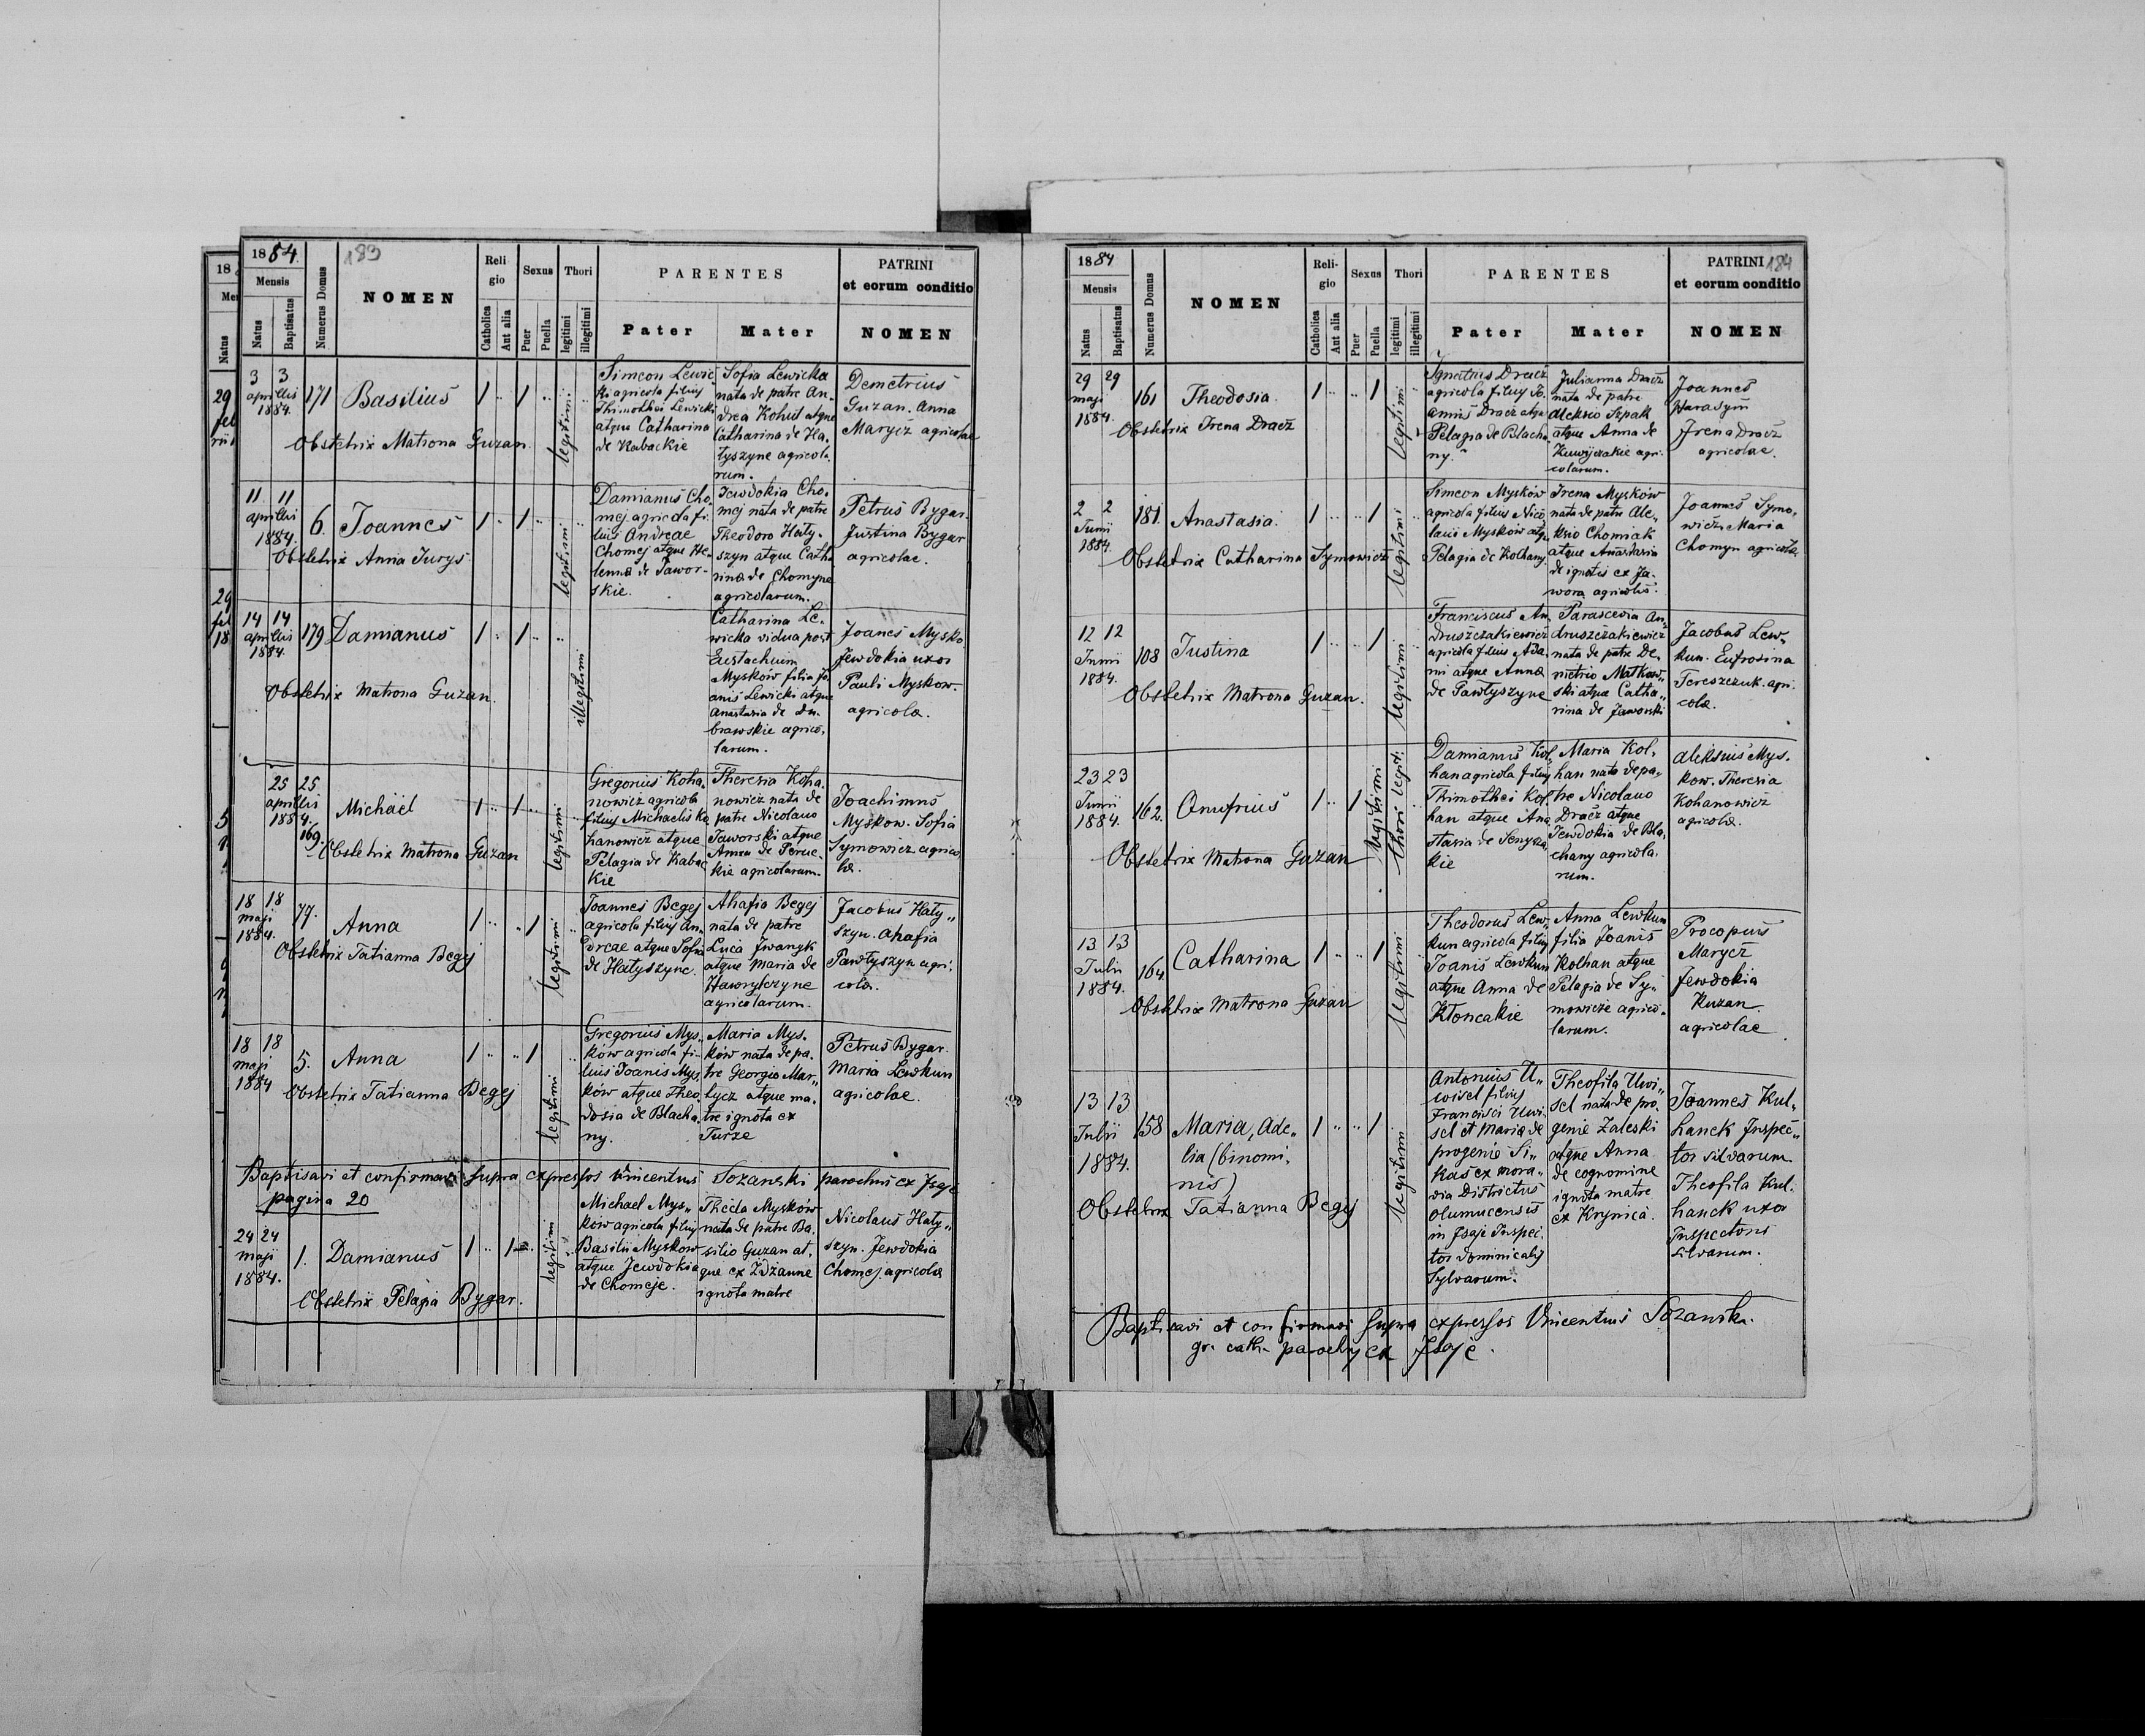 1884.
183
Mensis
Natus
Baptisatus
Numerus Domus
NOMEN
Reli-
gio
Catholica
Aut alia
Sexus
Puer
Puella
Thori
legitimi
illegitimi
PARENTES
Pater
Mater
PATRINI
et eorum conditio
NOMEN
3 3
aprillis
1884.
171
Basilius
1 .. 1 ..
legitimi
Obstetrix Matrona Guzan.
Simeon Lewic
ki agricola filius
Thimothei Lewicki
atque Catharina
de Kabackie
Sofia Lewicka
nata de patre An-
drea Kohut atque
Catharina de Ha-
tyszyne agricola-
rum.
Demetrius
Guzan. Anna
Marycz agricolae
11 11
aprillis
1884.
6.
Joannes
1 .. 1 ..
legitimi
Obstetrix Anna Jurys
Damianus Cho-
mej agricola fi-
lius Andreae
Chomej atque He-
lenna de Jawor-
skie.
Jewdokia Cho-
mej nata de patre
Theodoro Haty-
szyn atque Catha
rina de Chomyne
agricolarum.
Petrus Bygar.
Justina Bygar
agricolae.
14 14
aprillis
1884.
179
Damianus
1 .. 1 ..
illegitimi
Obstetrix Matrona Guzan.
Catharina Le-
wicka vidua post
Eustachium
Myskow filia Jo
anis Lewicki atque
Anastasia de Du-
brawskie agrico-
larum.
Joanes Mysko
Jewdokia uxor
Pauli Myskow.
agricolae.
25 25
aprillis
1884.
169.
Michaël
1 .. 1 ..
legitimi
Obstetrix Matrona Guzan
Gregorius Koha-
nowicz agricola
filius Michaelis Ko
hanowicz atque
Pelagia de Kabac
kie
Theresia Koha-
nowicz nata de
patre Nicolauo
Jaworski atque
Anna de Peruc-
kie agricolarum.
Joachimus
Myskow. Sofia
Symowicz agrico
lae.
18 18
maji
1884.
77.
Anna
1 .. .. 1
legitimi
Obstetrix Tatianna Begej
Joannes Begej
agricola filius An-
dreae atque Sofia
de Hatyszyne.
Ahafia Begej
nata de patre
Luca Jwanyk
atque Maria de
Hawryłczyne
agricolarum.
Jacobus Haty"
szyn. Ahafia
Pawłyszyn agri-
colae.
18 18
maji
1884
5.
Anna
1 .. .. 1
legitimi
Obstetrix Tatianna Begej
Gregorius Mys-
ków agricola fi-
lius Joanis Mys,
ków atque Theo,
dosia de Blacha,
ny.
Maria Mys-
ków nata de pa-
tre Georgio Mar"
tycz atque ma-
tre ignota ex
Turze
Petrus Bygar.
Maria Lewkun
agricolae.
Baptisavi et confirmavi supra expressos Vincentius Sozanski parochus ex Jsaje
pagina 20
24 24
maji
1884.
1.
Damianus
1 .. 1
legitimi
Obstetrix Pelagia Bygar.
Michael Mys"
ków agricola filius
Basilii Myskow
atque Jewdokia
de Chomeje.
Thecla Mysków
nata de patre Ba-
silio Guzan at-
que ex Zdzanne
ignota matre
Nicolaus Haty"
szyn. Jewdokia
Chomej. agricolae
1884
184
Mensis
Natus
Baptisatus
Numerus Domus
NOMEN
Reli-
gio
Catholica
Aut alia
Sexus
Puer
Puella
Thori
legitimi
illegitimi
PARENTES
Pater
Mater
PATRINI
et eorum conditio
NOMEN
29 29
maji
1884.
161
Theodosia.
1 .. .. 1
legitimi
Obstetrix Irena Dracz
Ignatius Dracz
agricola filius Jo-
annis Dracz atque
Pelagia de Blacha
ny.
Julianna Dracz
nata de patre
Aleksio Szpak
atque Anna de
agri-
colarum.
Joannes
Harasym
Jrena Dracz
agricolae.
2 2
Junii
1884.
181.
Anastasia.
1 .. .. 1
legitimi
Obstetrix Catharina Symowicz
Simeon Mysków
agricola filius Nico,
laus Mysków atq.
Pelagia de Kolhany.
Irena Mysków
nata de patre Ale"
ksio Chomiak
atque Anastasia
de ignotis ex Ja-
wora agricolis.
Joannes Symo,
wicz. Maria
Chomyn agricolae.
12 12
Junii
1884.
108
Justina
1 .. .. 1
legitimi
Obstetrix Matrona Guzan.
Franciscus An
druszczakiewicz
agricola filius Ada-
mi atque Anna
de Pawłyszyne
Parascevia An,
druszczakiewicz
nata de patre De,
metrio Matkow"
ski atque Catha"
rina de Jaworski
Jacobus Lew"
kun. Eufrosina
Tereszczuk. agri-
colae.
23 23
Junii
1884.
162.
Onufrius
1 .. 1
legitimi
thori legiti:
Obstetrix Matrona Guzan
Damianus Kol,
han agricola filius
Thimothei Kol,
han atque Ana
stasia de
kie
Maria Kol,
han nata de pa-
tre Nicolauo
Dracz atque
Jewdokia de Bla,
chany agricola-
rum.
Aleksius Mys-
kow. Theresia
Kohanowicz
agricolae.
13 13
Julii
1884.
164
Catharina
1 .. .. 1
legitimi
Obstetrix Matrona Guzan
Theodorus Lew"
kun agricola filius
Joanis Lewkun
atque Anna de
Kłoncakie
Anna Lewkun
filia Joanis
Kolhan atque
Pelagia de Sy"
mowicze agrico-
larum.
Procopius
Marycz
Jewdokia
Kuzan
agricolae
13 13
Julii
1884.
158
Maria, Ade"
lia (binomi,
nis)
1 .. .. 1
legitimi
Obstetrix Tatianna Begej
Antonius U"
wisel filius
Francisci Uwi-
sel et Maria de
progenie Si"
kas ex mora"
via Districtus
olumucensis
in Jsaje Inspec,
tor dominicalis
Sylvarum.
Theofila Uwi-
sel nata de pro-
genie Zaleski
atque Anna
de cognomine
ignota matre
ex Krynica.
Joannes Kul"
hanek Jnspec"
tor silvarum
Theofila Kul-
hanek uxor
Jnspectoris
silvarum.
Baptisavi et confirmavi supra expressos Vincentius Sozanski.
gr. cath. parochus ex Jsaje.